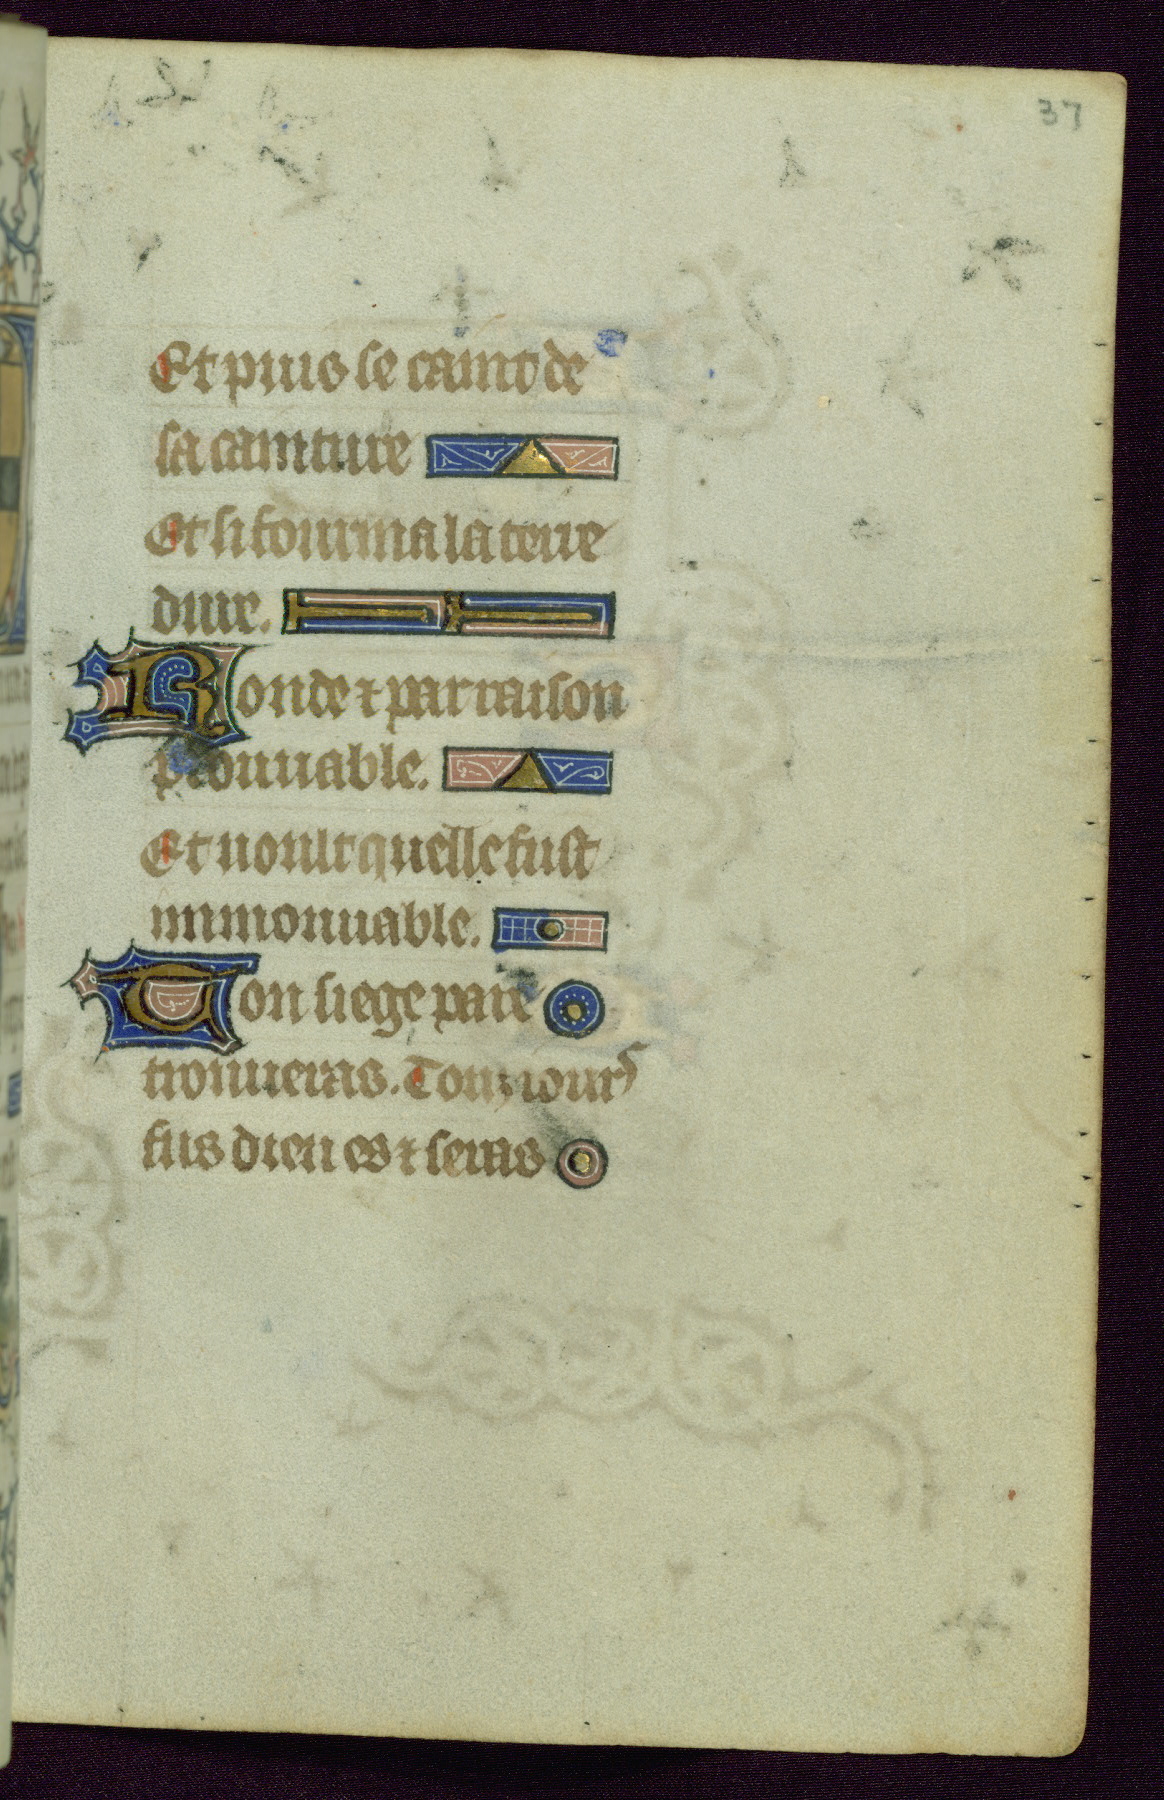 37
Et puis se caint de
sa cainture
Et si fourma la terre
dure.
Ronde ⁊ par raison
prouuable.
Et uoult quelle fust
immouuable.
Ton siege pare
trouueras. Touziours
fus dieu es ⁊ seras